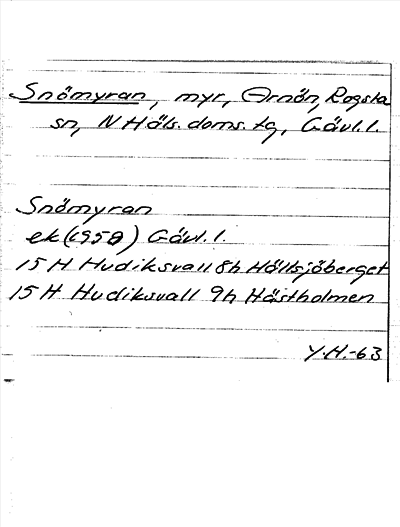 Snömyran, myr, Arnön, Rogsta
sn, N Häls. doms. tg, Gävl. l.
Snömyran
ek (1959) Gävl. l.
15 H Hudiksvall 8h Hällsjöberget
15 H Hudiksvall 9h Hästholmen
Y.H.-63